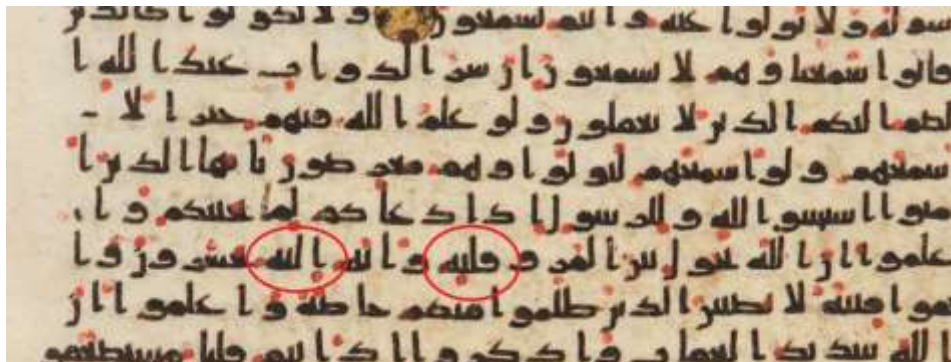 سوله ولا تولوا عنه وانتم تسمعون ولا تكونوا كالذين
قالوا سمعنا وهم لا يسمعون ان شر الدواب عند الله ا
لصم البكم الذين لا يعقلون ولو علم الله فيهم خيرا لا -
سمعهم ولو اسمعهم لتولوا وهم معرضون يايها الذين ا
منوا استجيبوا لله وللرسول اذا دعاكم لما يحييكم وا
علموا ان الله يحول بين المر وقلبه وانه اليه تحشرون وا
تقوا فتنة لا تصيبن الذين ظلموا منكم خاصة واعلموا ان
الله شديد العقاب واذكروا اذ انتم قليل مستضعفون